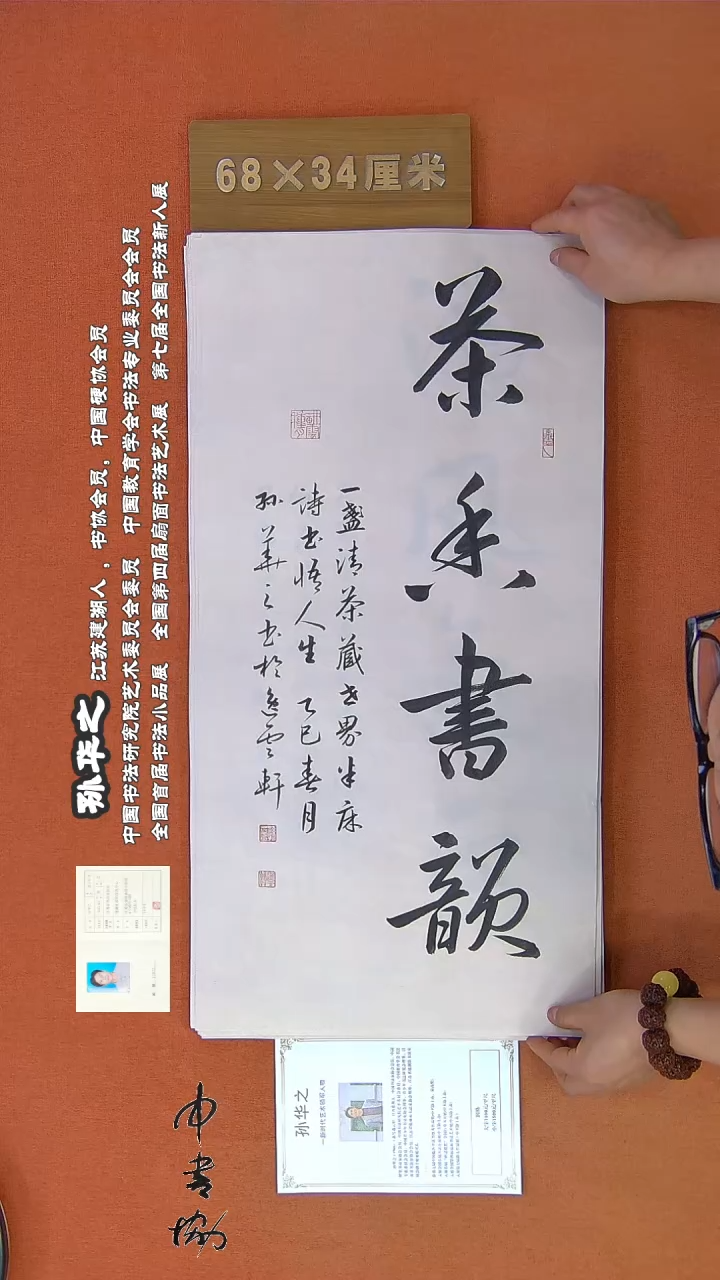 68×34厘米
茶香書韻
一盏清茶藏世界半床
詩书悟人生 乙巳春月
孙華之书於逸雲軒
孙华之 江苏建湖人，书协会员，中国硬协会员
中国书法研究院艺术委员会委员 中国教育学会书法专业委员会会员
全国首届书法小品展 全国第四届扇面书法艺术展 第七届全国书法新人展
孙华之
中書协